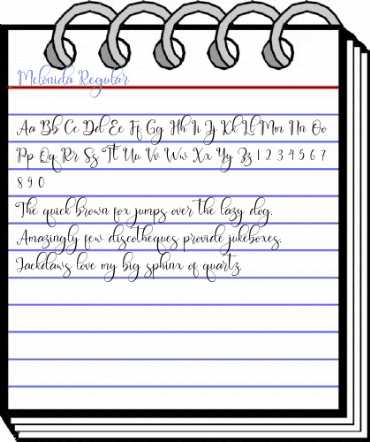 Melonida Regular
Aa Bb Cc Dd Ee Ff Gg Hh Ii Jj Kk Ll Mm Nn Oo
Pp Qq Rr Ss Tt Uu Vv Ww Xx Yy Zz 1 2 3 4 5 6 7
8 9 0
The quick brown fox jumps over the lazy dog.
Amazingly few discotheques provide jukeboxes.
Jackdaws love my big sphinx of quartz.